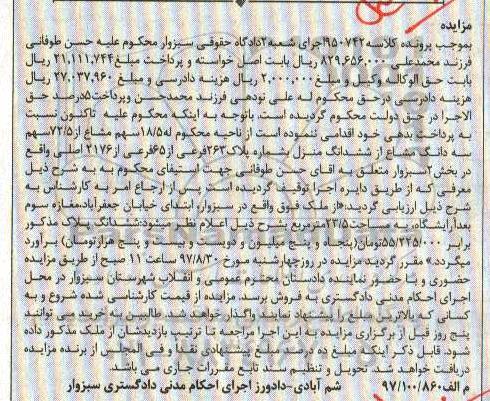 مزایده
بموجب پرونده کلاسه ۹۵۰۷۴۲ اجرای شعبه ۲ دادگاه حقوقی سبزوار محکوم علیه حسن طوفانی
فرزند محمدعلی ۸۲۹,۶۵۶,۰۰۰ ریال بابت اصل خواسته و پرداخت مبلغ ۲۱,۱۱۱,۷۴۴ ریال
بابت حق الوکاله وکیل و مبلغ ۲,۰۰۰,۰۰۰ ریال هزینه دادرسی و مبلغ ۲۷,۰۳۷,۹۶۰ ریال
هزینه دادرسی درحق محکوم له علی نودهی فرزند محمدحسن وپرداخت ۵درصد حق
الاجرا در حق دولت محکوم گردیده است. باتوجه به اینکه محکوم علیه تاکنون نسبت
به پرداخت بدهی خود اقدامی ننموده است از ناحیه محکوم له ۱۸/۵سهم مشاع از ۷۲/۵سهم
سه دانگ مشاع از ششدانگ منزل شماره پلاک ۲۶۲فرعی از ۶۵فرعی از ۲۱۷۶ اصلی واقع
در بخش ۲سبزوار متعلق به اقای حسن طوفانی جهت استیفای محکوم به به شرح ذیل
معرفی که از طریق دایره اجرا توقیف گردیده است پس از ارجاع امر به کارشناس به
شرح ذیل ارزیابی گردید:«از ملک فوق واقع در سبزوار، ابتدای خیابان جعفرآباد،مغازه سوم
بعدازآرایشگاه،به مساحت ۲۳/۵مترمربع بشرح ذیل اعلام نظر میشود:ششدانگ پلاک مذکور
برابر ۵۵/۲۲۵/۰۰۰تومان(پنجاه و پنج میلیون و دویست و بیست و پنج هزارتومان) برآورد
میگردد.» مقرر گردید مزایده در روزچهارشنبه مورخ ۹۷/۸/۳۰ ساعت ۱۱ صبح از طریق مزایده
حضوری و با حضور نماینده دادستان محترم عمومی و انقلاب شهرستان سبزوار در محل
اجرای احکام مدنی دادگستری به فروش برسد. مزایده از قیمت کارشناسی شده شروع و به
کسانی که بالاترین مبلغ را پیشنهاد نمایند واگذار خواهد شد. طالبین به خرید می توانند
پنج روز قبل از برگزاری مزایده به این اجرا مراجعه تا ترتیب بازدیدشان از ملک مذکور داده
شود. قابل ذکر اینکه مبلغ ده درصد مبلغ پیشنهادی نقدا و فی المجلس از برنده مزایده
دریافت خواهد شد. تحویل و تنظیم سند تابع مقررات جاری می باشد.
م الف ۹۷/۱۰۰/۸۶۰ شم آبادی-دادورز اجرای احکام مدنی دادگستری سبزوار